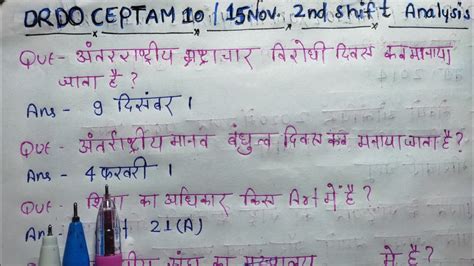 DRDO CEPTAM 10 / 15 Nov. 2nd Shift Analysis
Que - अंतरराष्ट्रीय भ्रष्टाचार विरोधी दिवस कब मनाया
जाता है ?
Ans - 9 दिसंबर ।
Que - अंतर्राष्ट्रीय मानव बंधुत्व दिवस कब मनाया जाता है ?
Ans - 4 फरवरी ।
Que - शिक्षा का अधिकार किस Art में है ?
Ans - 21(A)
का मुख्यालय में है ?